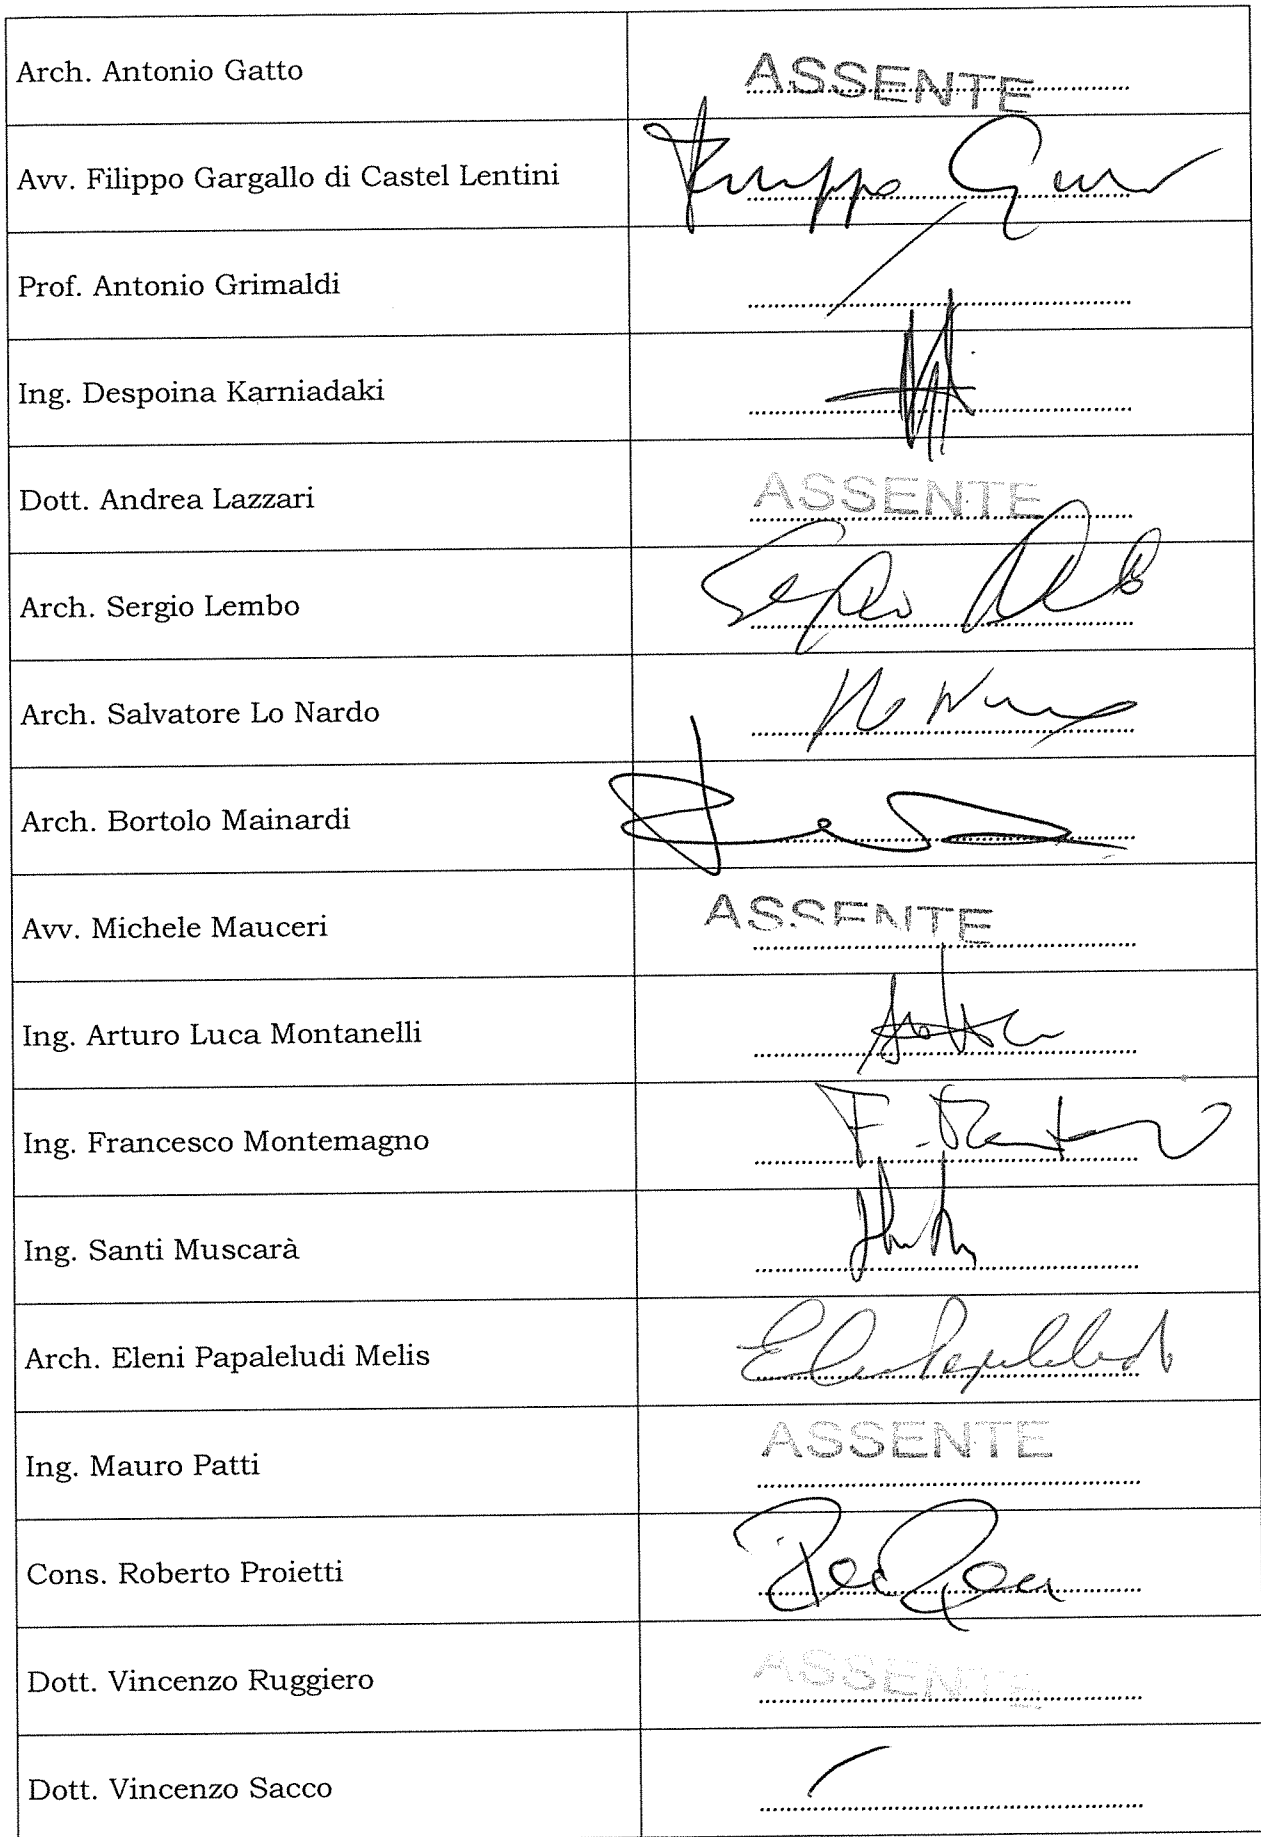 Arch. Antonio Gatto
ASSENTE
Avv. Filippo Gargallo di Castel Lentini
Prof. Antonio Grimaldi
Ing. Despoina Karniadaki
Dott. Andrea Lazzari
ASSENTE
Arch. Sergio Lembo
Arch. Salvatore Lo Nardo
Arch. Bortolo Mainardi
Avv. Michele Mauceri
ASSENTE
Ing. Arturo Luca Montanelli
Ing. Francesco Montemagno
Ing. Santi Muscarà
Arch. Eleni Papaleludi Melis
Ing. Mauro Patti
ASSENTE
Cons. Roberto Proietti
Dott. Vincenzo Ruggiero
ASSENTE
Dott. Vincenzo Sacco